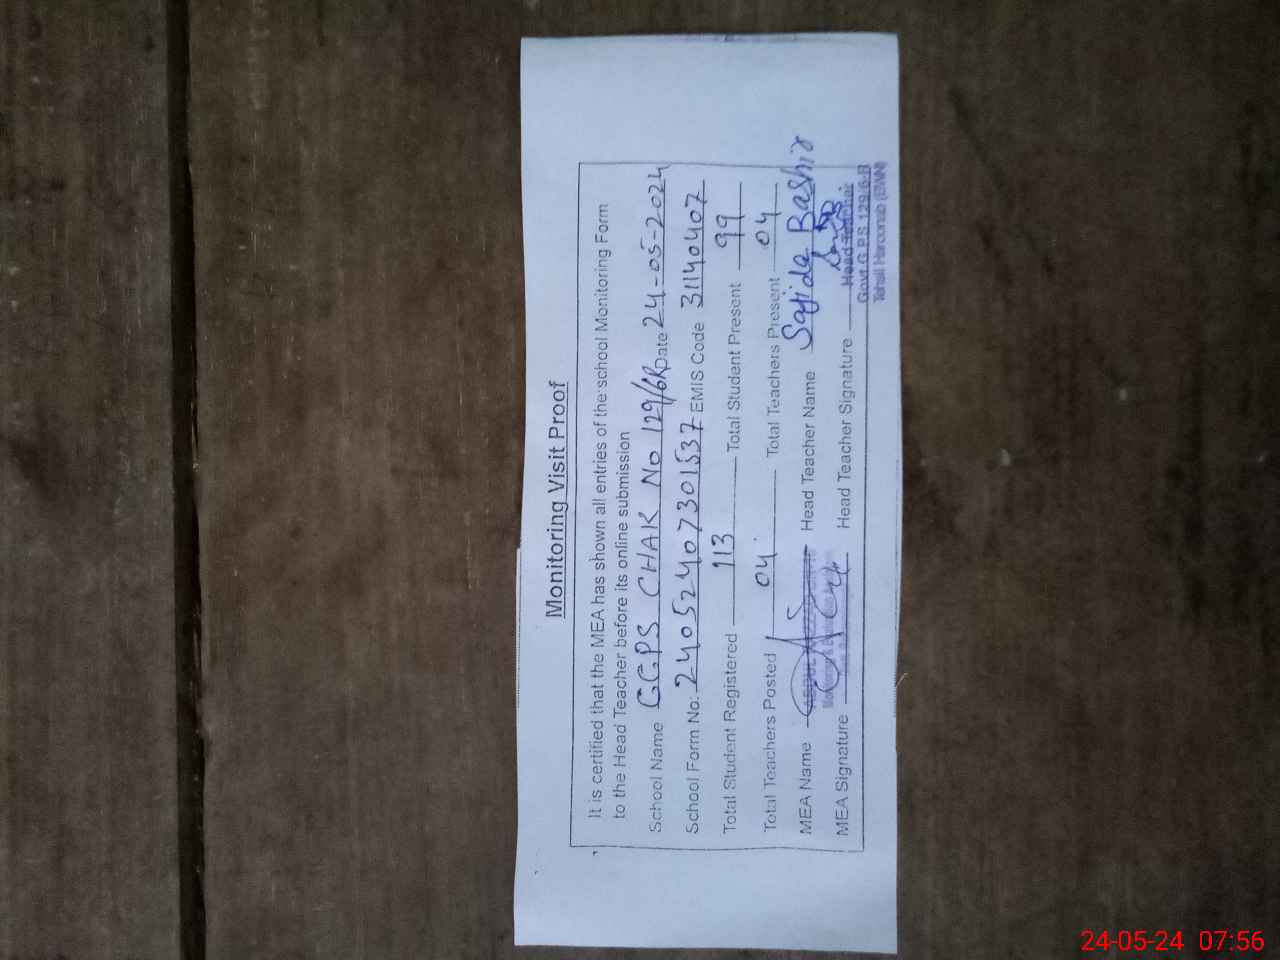 Monitoring Visit Proof
It is certified that the MEA has shown all entries of the school Monitoring Form
to the Head Teacher before its online submission
School Name GGPS CHAK No 129/6R Date 24-05-2024
School Form No: 24052407301537 EMIS Code 31140407
Total Student Registered 113 Total Student Present 99
Total Teachers Posted 04 Total Teachers Present 04
MEA Name Head Teacher Name Sajida Bashir
MEA Signature Head Teacher Signature
Head Teacher
Govt.G.P.S. 129/6-R
Tehsil Haroonab (BWN)
24-05-24 07:56